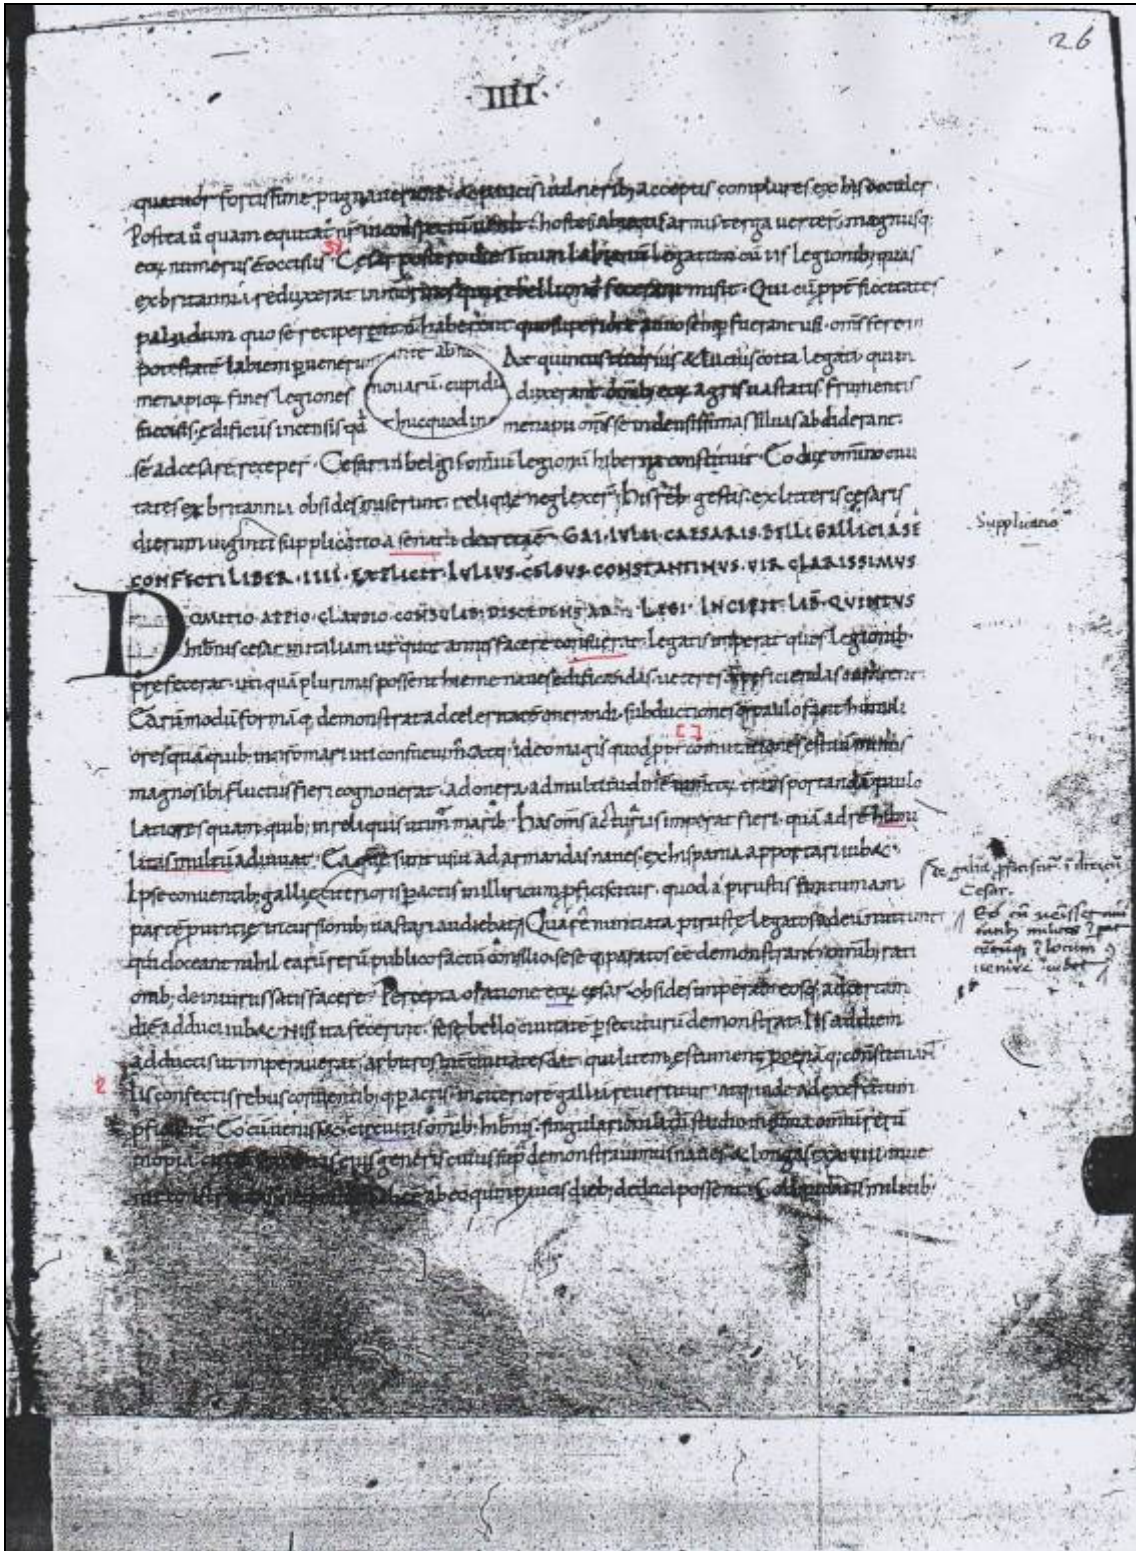 26
·IIII·
quatuor fortissime pugnaverunt & paucis vulneribus acceptis complures ex his occider
Postea ũ quam equitat nr in conspectum venit hostes abiectis armis terga verter magnusq;
eoꝝ numerus ẽ occisus Cesar postero die Titum labienum legatum cũ iis legionibꝫ quas
ex britannia reduxerat in morinos qui rebellionẽ fecerant misit Qui cũ ppt siccitates
paludum quo se reciperent ñ haberent quo superiore anno fuerant usi oms fere in
potestatẽ labieni pervenerunt At quintus titurius & lucius cotta legati qui in
menapioꝝ fines legiones duxerant omibꝫ eoꝝ agris vastatis frumentis
succisis edificiis incensis qđ menapii oms se in densissimas silvas abdiderant
ante ab no
novarũ cupidi
huc quod in
se ad cesarẽ receper Cesar in belgis omniũ legionũ hiberna constituit Eo due omnino civi
tates ex britannia obsides miserunt relique neglexer His reb gestis ex litteris cesaris
dierum viginti supplicatio a senatu decreta ẽ GAI IVLII CAESARIS BELLI GALLICI A SE
CONFECTI LIBER IIII EXPLICIT IVLIVS CELSVS CONSTANTINVS VIR CLARISSIMVS
DOMITIO APPIO CLAVDIO CONSULIB; DISCEDENS AB LEGI INCIPIT LIB QVINTVS
hibnis cesar in italiam ut quot annis facere consuerat legatis imperat quos legionib
prefecerat uti quã plurimas possent hieme naves edificandas veteres reficiendas curarent
Earũ modũ formãq; demonstrat ad celeritatẽ onerandi subductionesq; paulo facit humili
ores quã quib; in nostro mari uti consuevim Atq; id eo magis quod ppt comutationes estuũ minus
magnos ibi fluctus fieri cognoverat ad onera ad multitudinẽ iumtoꝝ transportandã paulo
latiores quam quib; in reliquis utimur marib Has omis actuarias imperat fieri quã ad rẽ humi
litas multũ adiuvat Ea que sunt usui ad armandas naves ex hispania apportari iubet
Ipse conventib; gallie citerioris peractis in illiricum pficiscitur quod a pirustis finitimam
partẽ provintie incursionib; vastari audiebat Qua re nuntiata piruste legatos ad eũ mittunt
qui doceant nihil earũ rerũ publico factũ consilio sese q; paratos eẽ demonstrant omib; rati
onib; de iniuriis satisfacere Percepta oratione eoꝝ cesar obsides imperat eosq; ad certam
diẽ adduci iubet nisi ita fecerint sese bello civitatẽ persecuturũ demonstrat His ad diem
adductis ut imperaverat arbitros int civitates dat qui litem estiment poenãq; constituant
His confectis rebus conventib;q; peractis in citeriorẽ galliã revertitur atq; inde ad exercitum
pficiscit Eo cũ venisset circuitis omib; hibnis singulari militũ studio in sũma omniũ rerũ
inopia eius generis cuius sup demonstravimus naves & longas XXVIII inve
ab eo quin paucis dieb; deduci possent Collaudatis militib
Supplicatio
Cesar
Eo cũ venisset